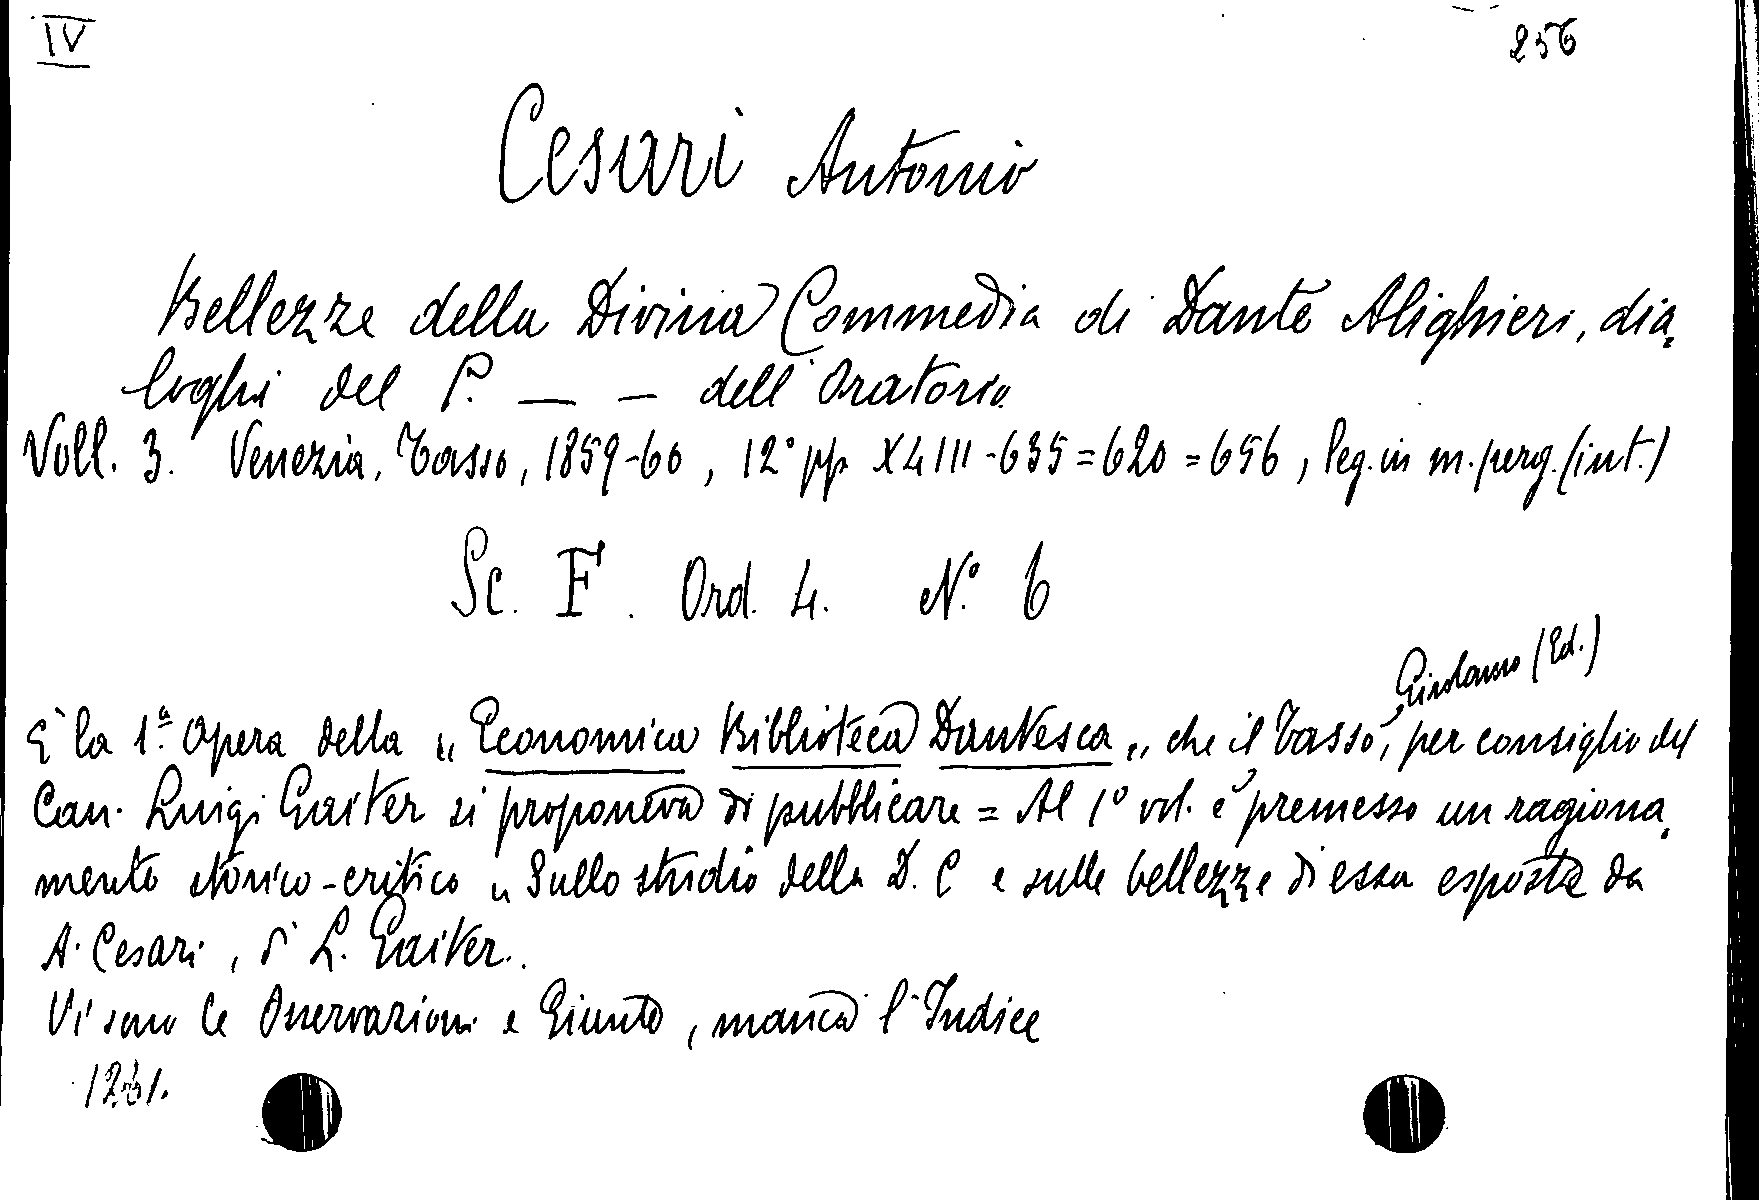 IV
256
Cesari Antonio
Bellezze della Divina Commedia di Dante Alighieri, dia=
loghi del P. — — dell'Oratorio
Voll. 3. Venezia, Tasso, 1859-60, 12° pp. XLIII-635=620=656, leg. in m. perg. (int.)
Sc. F. Ord. 4. N.° 6
Girolamo (Ed.)
È la 1.ª Opera della „Economica Biblioteca Dantesca„, che il Tasso, per consiglio del
Can. Luigi Gaiter si proponeva di pubblicare = Al 1° vol. è premesso un ragiona=
mento storico-critico „Sullo studio della D. C e sulle bellezze di essa esposte da
A. Cesari, di L. Gaiter.
Vi sono le Osservazioni e Giunte, manca l'Indice